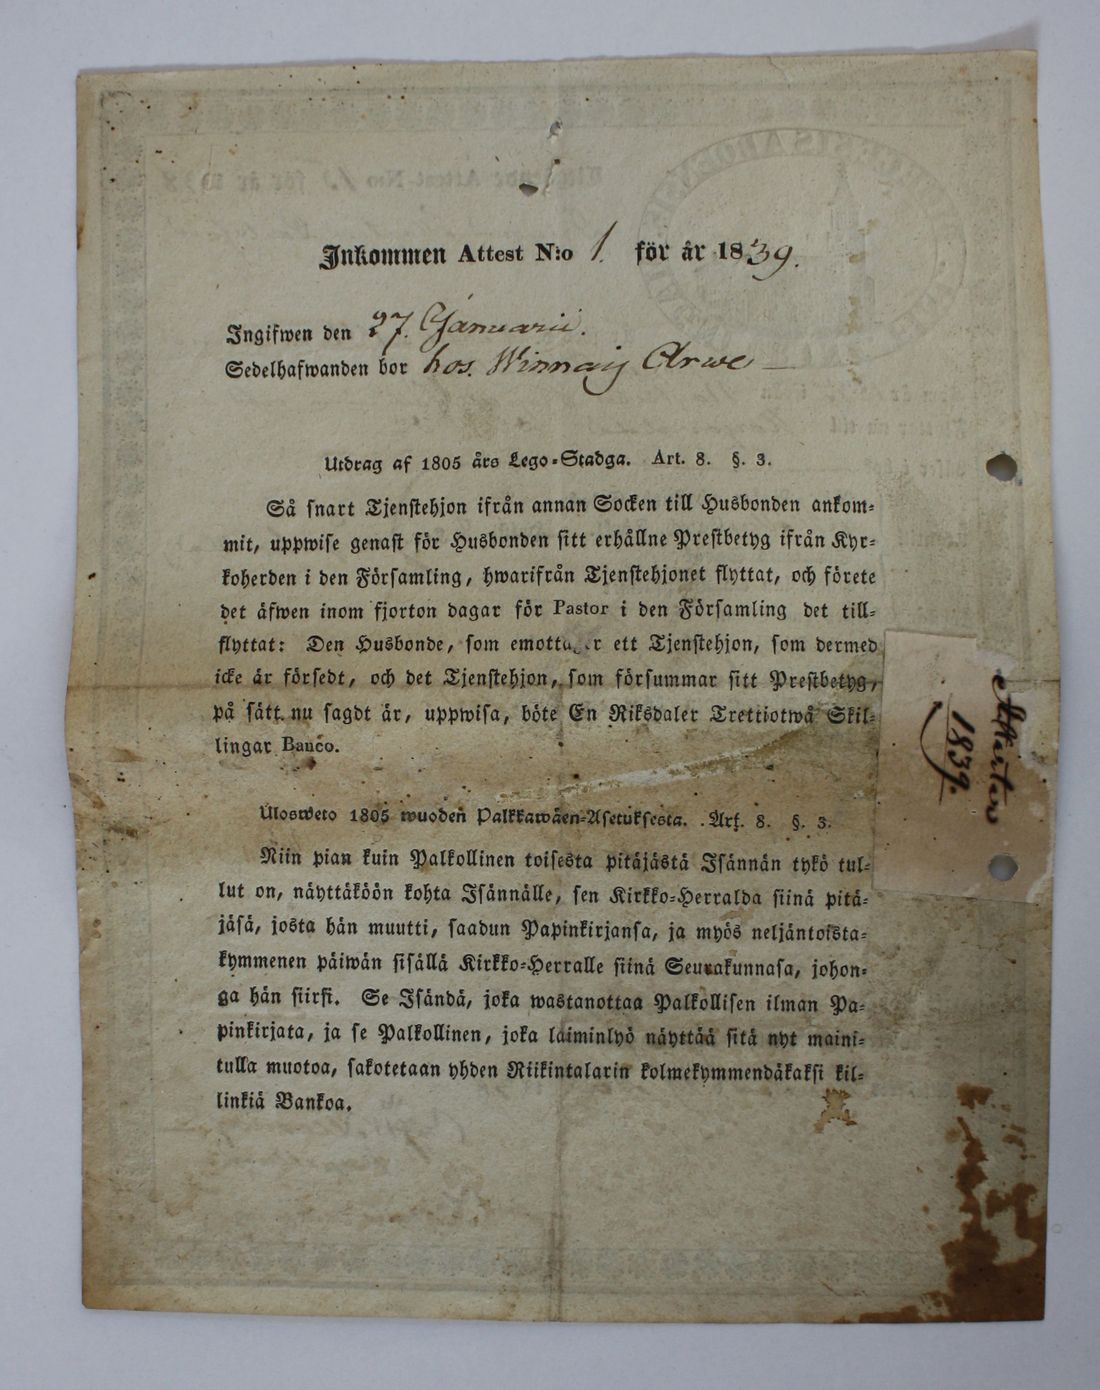 Inkommen Attest N:o 1. för år 1839.
Ingifwen den 27. Januarii.
Sedelhafwanden bor hos. Winnaig Arwe
Utdrag af 1805 års Lego-Stadga. Art. 8. §. 3.
Så snart Tjenstehjon ifrån annan Socken till Husbonden ankom-
mit, uppwise genast för Husbonden sitt erhållne Prestbetyg ifrån Kyr-
koherden i den Församling, hwarifrån Tjenstehjonet flyttat, och förete
det äfwen inom fjorton dagar för Pastor i den Församling det till-
flyttat: Den Husbonde, som emottager ett Tjenstehjon, som dermed
icke är försedt, och det Tjenstehjon, som försummar sitt Prestbetyg,
på sätt nu sagdt är, uppwisa, böte En Riksdaler Trettiotwå Skil-
lingar Banco.
Ulosweto 1805 wuoden Palkkawäen-Asetuksesta. Art. 8. §. 3.
Niin pian kuin Palkollinen toisesta pitäjästä Isännän tykö tul-
lut on, näyttäköön kohta Isännälle, sen Kirkko-Herralda siinä pitä-
jäsä, josta hän muutti, saadun Papinkirjansa, ja myös neljäntoista-
kymmenen päiwän sisällä Kirkko-Herralle siinä Seurakunnasa, johon-
ga hän siirsi. Se Isändä, joka wastanottaa Palkollisen ilman Pa-
pinkirjata, ja se Palkollinen, joka laiminlyö näyttää sitä nyt maini-
tulla muotoa, sakotetaan yhden Riikintalarin kolmekymmendäkaksi kil-
linkiä Bankoa.
1839.